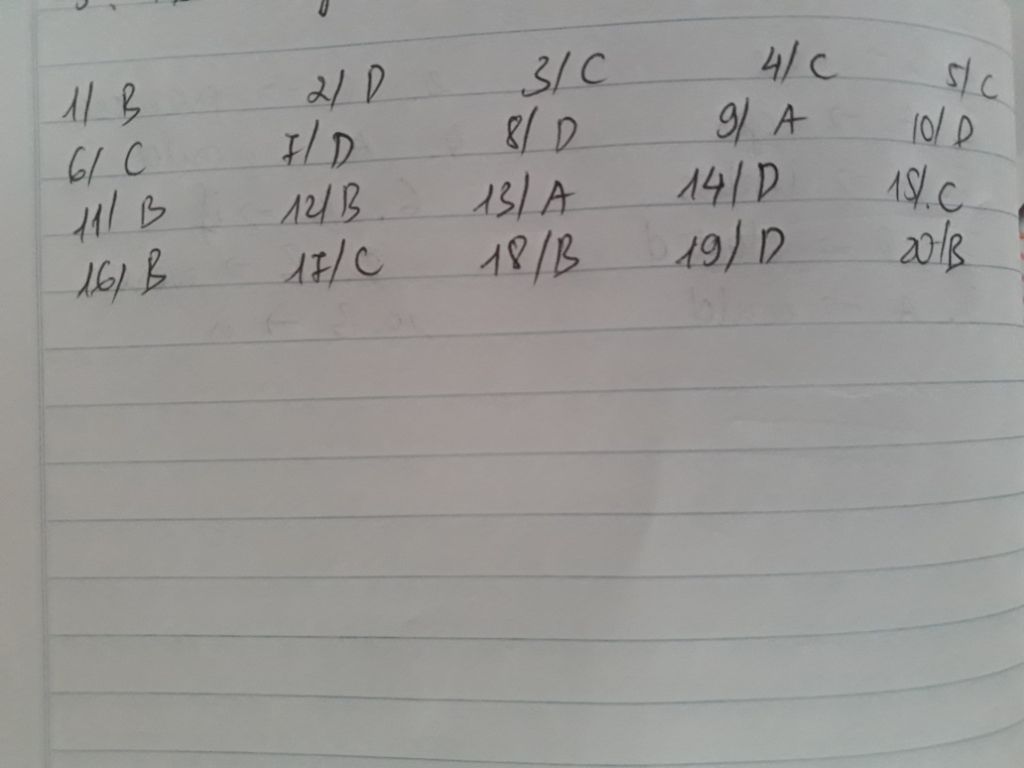 1/ B 2/ D 3/ C 4/ C 5/ C
6/ C 7/ D 8/ D 9/ A 10/ D
11/ B 12/ B 13/ A 14/ D 15/. C
16/ B 17/ C 18/ B 19/ D 20/ B